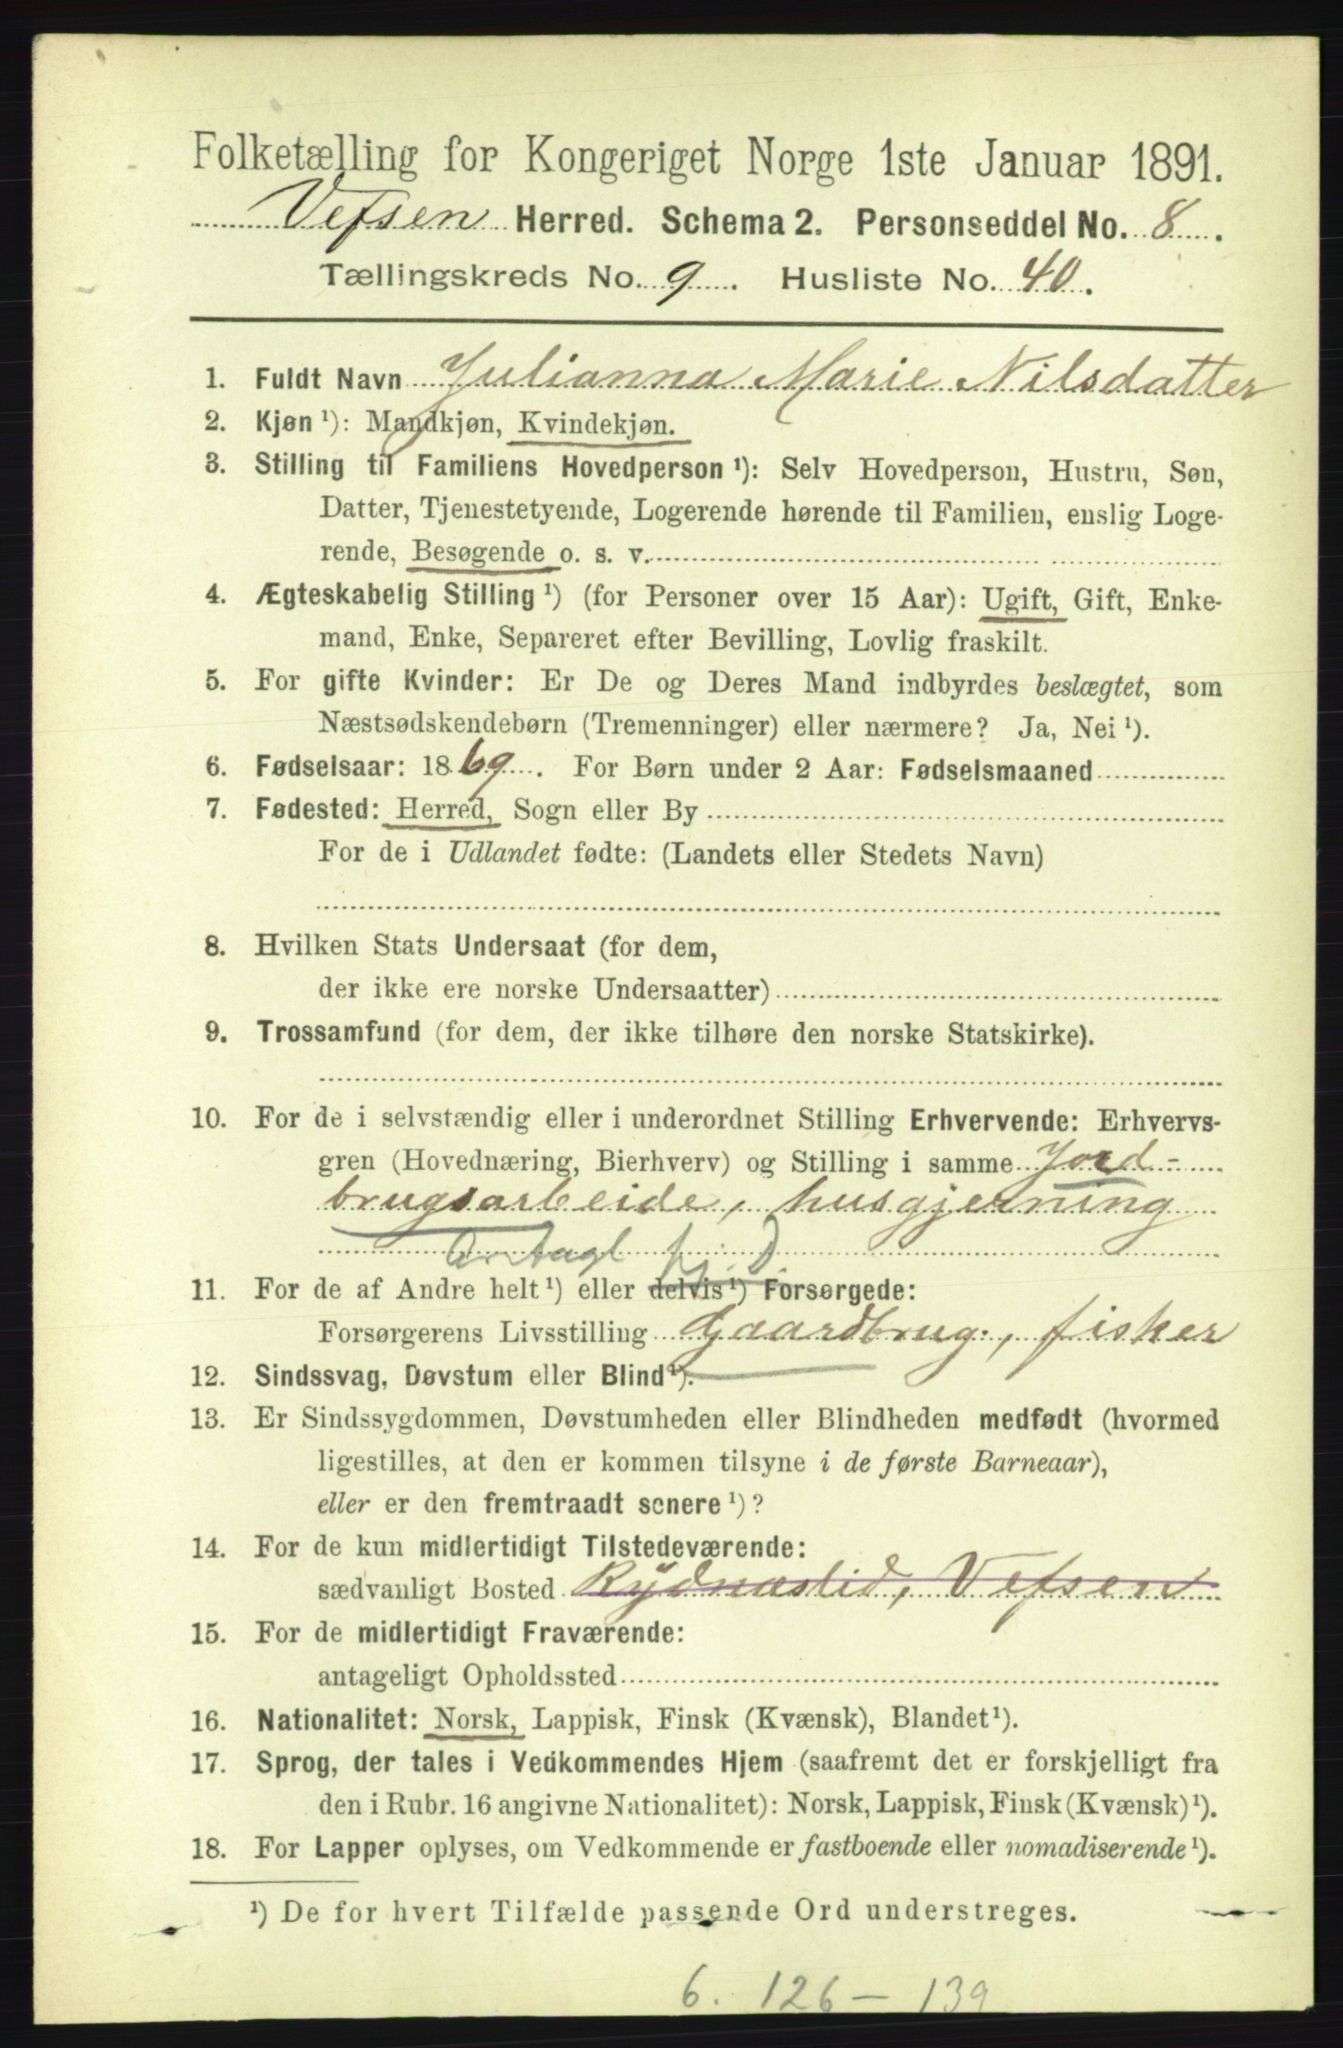 Folketælling for Kongeriget Norge 1ste Januar 1891.
Vefsen Herred. Schema 2. Personseddel No. 8.
Tællingskreds No. 9. Husliste No. 40.
1. Fuldt Navn Julianna Marie Nilsdatter
2. Kjøn ¹): Mandkjøn, Kvindekjøn.
3. Stilling til Familiens Hovedperson ¹): Selv Hovedperson, Hustru, Søn,
Datter, Tjenestetyende, Logerende hørende til Familien, enslig Loge-
rende, Besøgende o. s. v.
4. Ægteskabelig Stilling ¹) (for Personer over 15 Aar): Ugift, Gift, Enke-
mand, Enke, Separeret efter Bevilling, Lovlig fraskilt.
5. For gifte Kvinder: Er De og Deres Mand indbyrdes beslægtet, som
Næstsødskendebørn (Tremenninger) eller nærmere? Ja, Nei ¹).
6. Fødselsaar: 1869. For Børn under 2 Aar: Fødselsmaaned
7. Fødested: Herred, Sogn eller By
For de i Udlandet fødte: (Landets eller Stedets Navn)
8. Hvilken Stats Undersaat (for dem,
der ikke ere norske Undersaatter)
9. Trossamfund (for dem, der ikke tilhøre den norske Statskirke).
10. For de i selvstændig eller i underordnet Stilling Erhvervende: Erhvervs-
gren (Hovednæring, Bierhverv) og Stilling i samme Jord-
brugsarbeide, husgjerning
Antagl tj. D.
11. For de af Andre helt ¹) eller delvis ¹) Forsørgede:
Forsørgerens Livsstilling Gaardbrug., fisker
12. Sindssvag, Døvstum eller Blind ¹).
13. Er Sindssygdommen, Døvstumheden eller Blindheden medfødt (hvormed
ligestilles, at den er kommen tilsyne i de første Barneaar),
eller er den fremtraadt senere ¹)?
14. For de kun midlertidigt Tilstedeværende:
sædvanligt Bosted Rydnæslid, Vefsen
15. For de midlertidigt Fraværende:
antageligt Opholdssted
16. Nationalitet: Norsk, Lappisk, Finsk (Kvænsk), Blandet ¹).
17. Sprog, der tales i Vedkommendes Hjem (saafremt det er forskjelligt fra
den i Rubr. 16 angivne Nationalitet): Norsk, Lappisk, Finsk (Kvænsk) ¹).
18. For Lapper oplyses, om Vedkommende er fastboende eller nomadiserende ¹).
¹) De for hvert Tilfælde passende Ord understreges.
6. 126 – 139